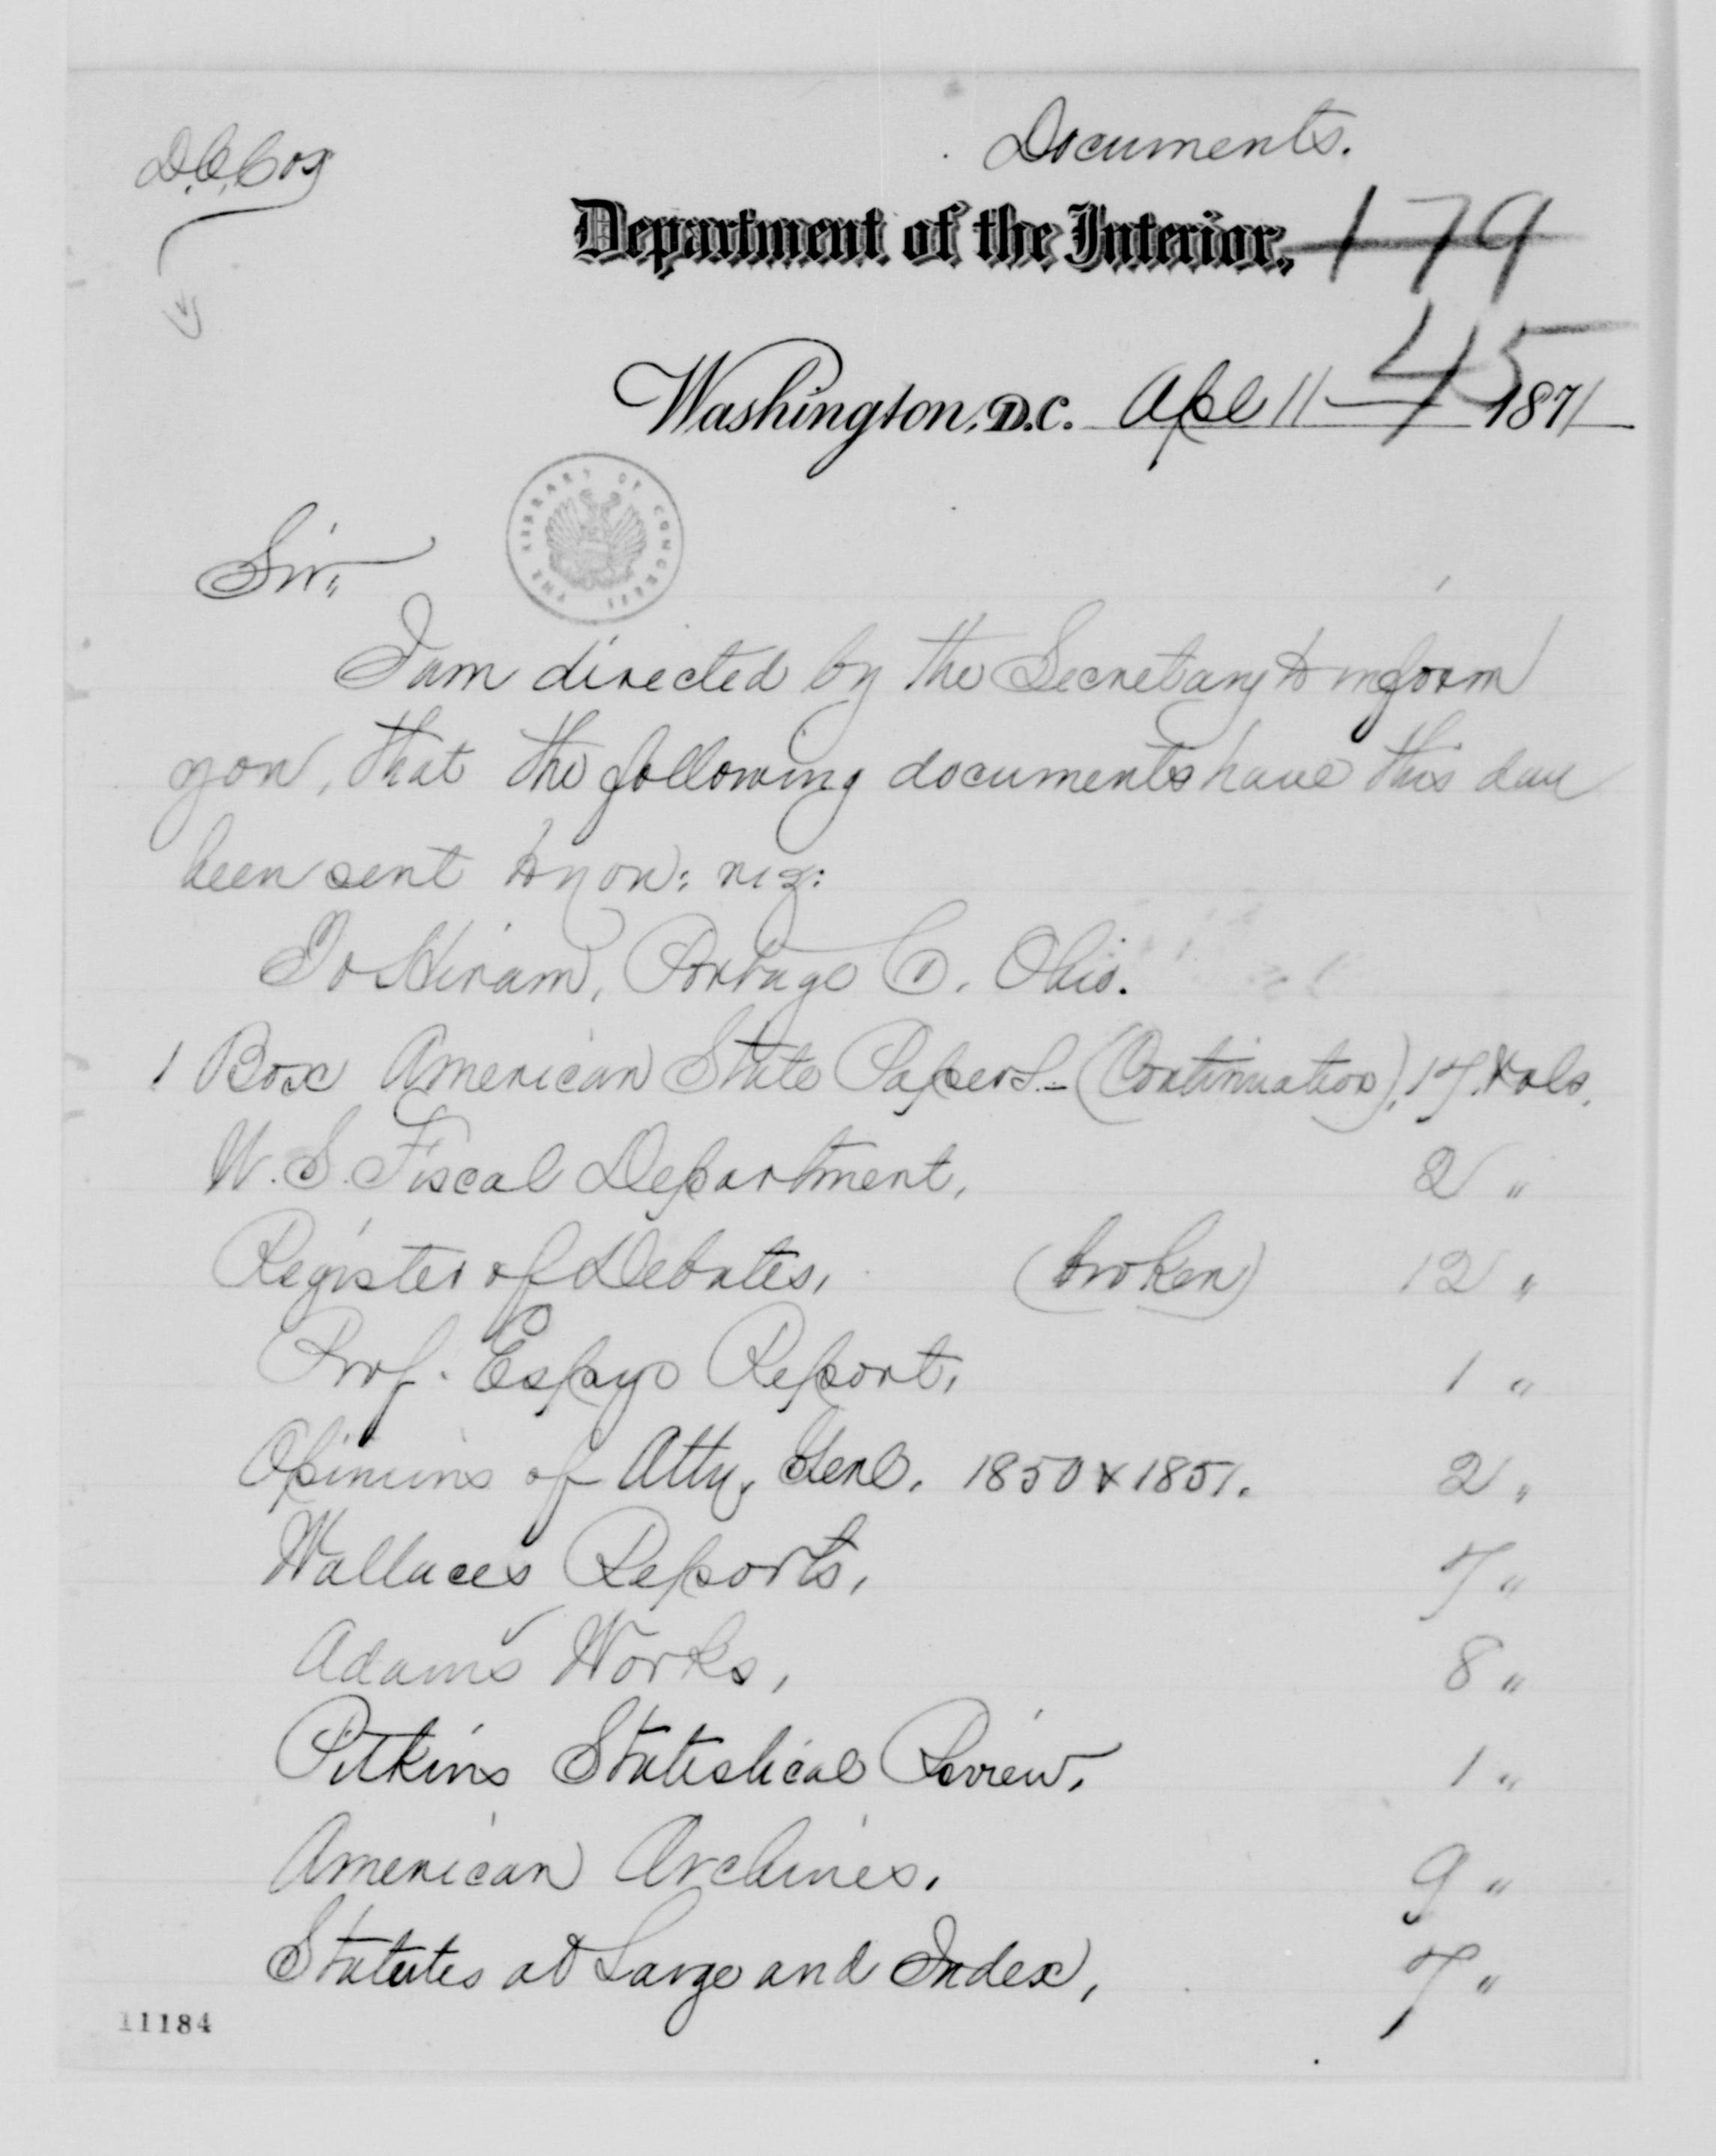 Documents.
D.C. Cox
Department of the Interior,
179
45
Washington, D.C. Apl 11 1871
THE LIBRARY OF CONGRESS
Sir,
I am directed by the Secretary to inform
you, that the following documents have this day
been sent to you: viz:
To Hiram, Portage Co. Ohio.
1 Box American State Papers - (Continuation), 17 Vols.
U.S. Fiscal Department, 2 "
Register of Debates, (broken) 12 "
Prof. Espys Report, 1 "
Opinions of Atty. Genl. 1850 & 1851. 2 "
Wallaces Reports, 7 "
Adams Works, 8 "
Pitkins Statistical Review, 1 "
American Archives. 9 "
Statutes at Large and Index, 7 "
11184